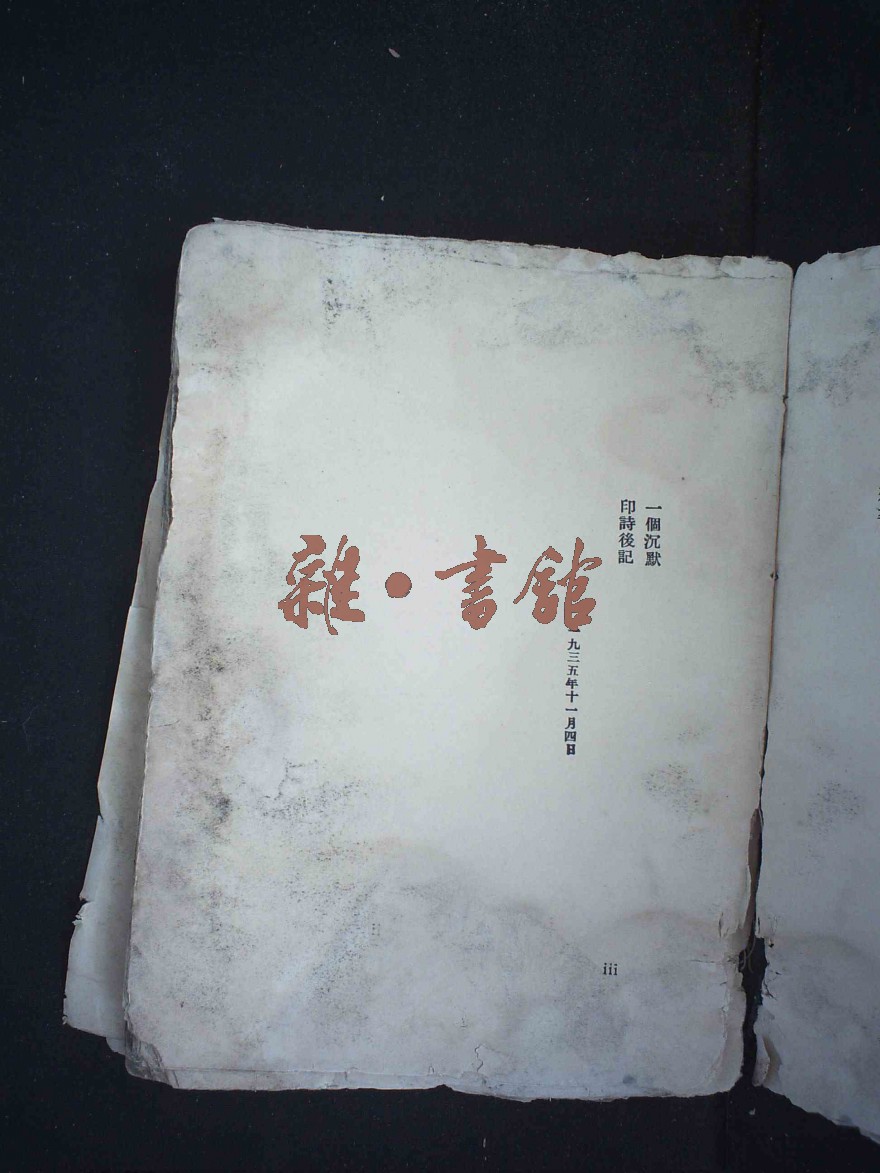 一個沉默
印詩後記
九三五年十一月四日
雜·書館
iii